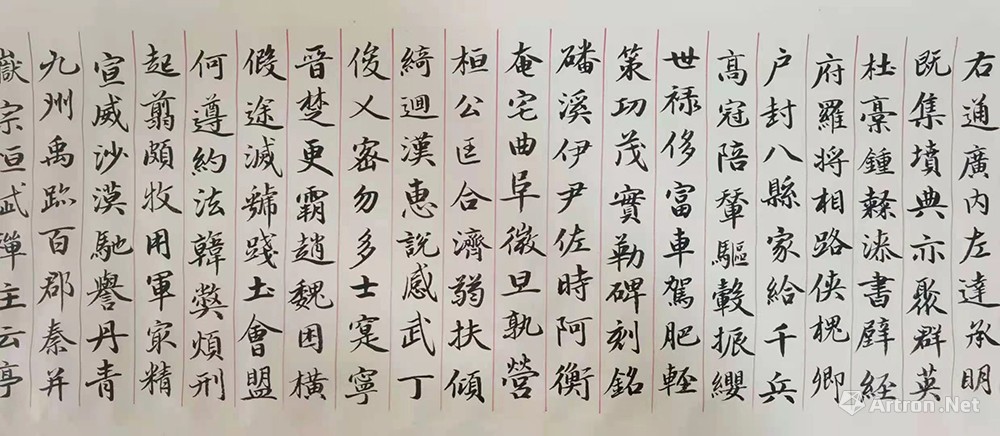 右通廣內左達承明
既集墳典亦聚群英
杜稾鍾隸漆書壁経
府羅將相路俠槐卿
户封八縣家給千兵
髙冠陪輦驅轂振纓
世禄侈富車駕肥軽
策功茂實勒碑刻銘
磻溪伊尹佐時阿衡
奄宅曲阜微旦孰營
桓公匡合濟弱扶傾
綺迴漢惠說感武丁
俊乂密勿多士寔寧
晉楚更霸趙魏困橫
假途滅虢踐土會盟
何遵約法韓弊煩刑
起翦頗牧用軍宼精
宣威沙漠馳譽丹青
九州禹跡百郡秦并
嶽宗恒岱禪主云亭
Artron.Net